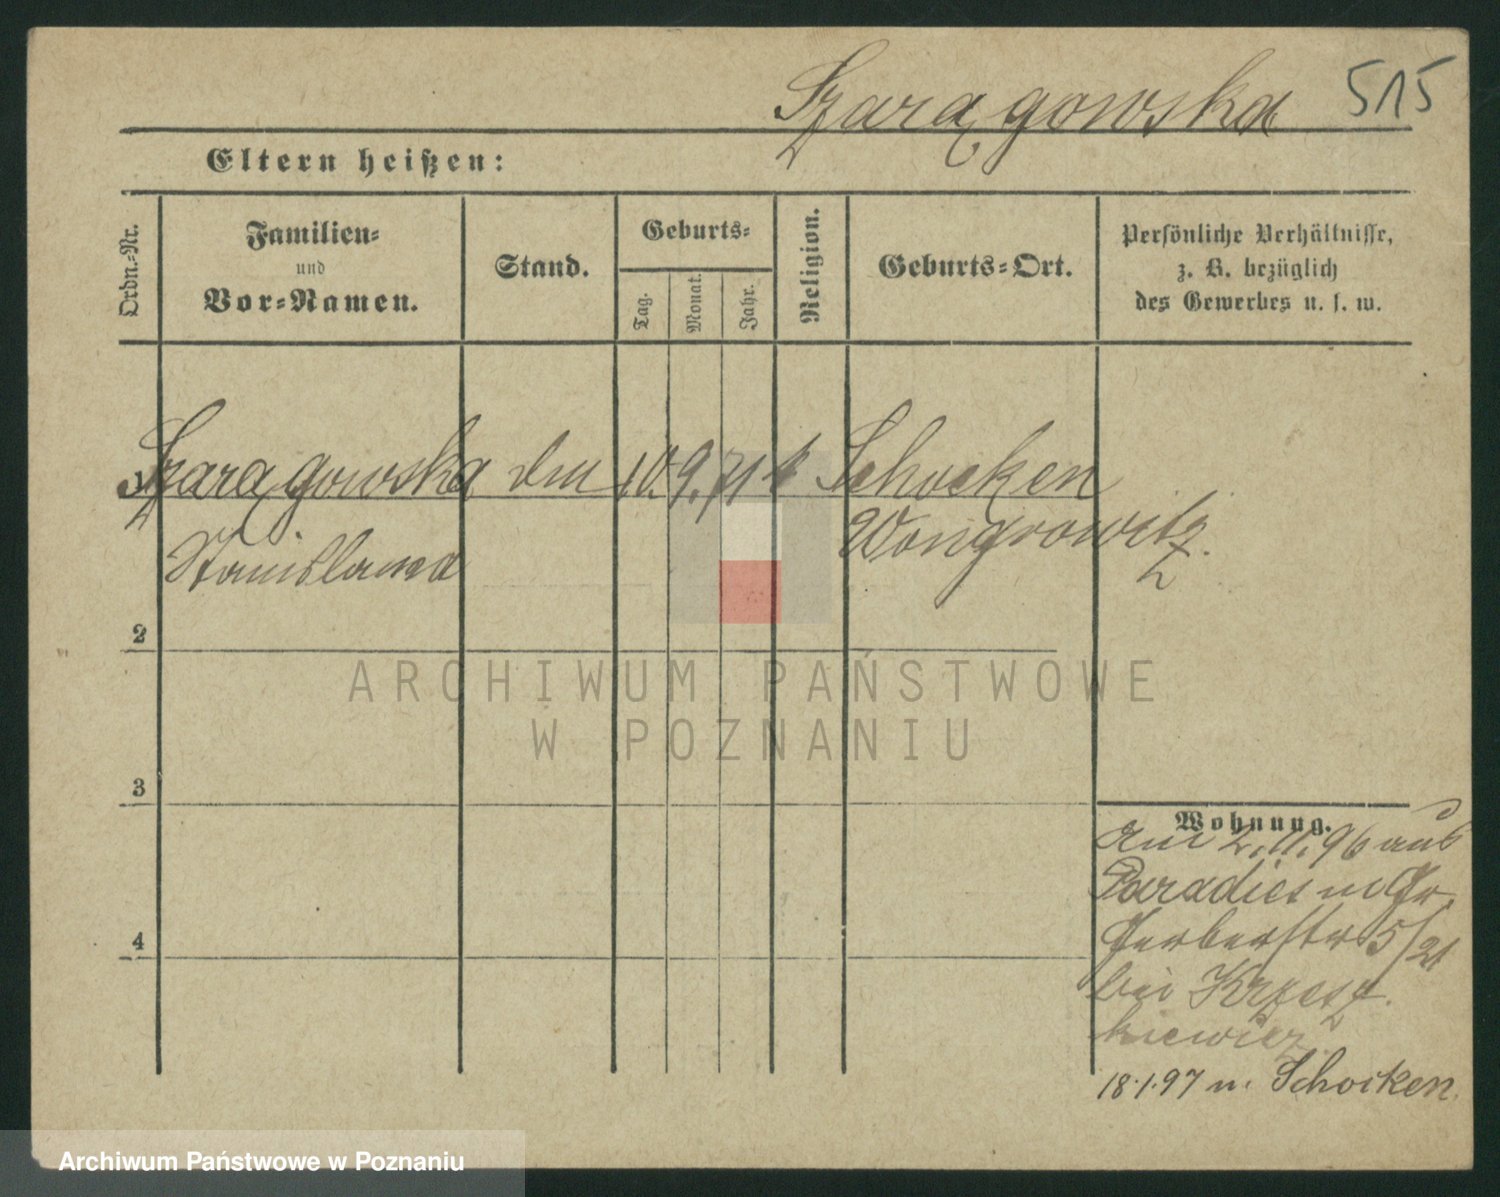 Szarągowska 515
Eltern heißen:
Ordn.-Nr.
Familien-
und
Vor-Namen.
Stand.
Geburts-
Tag.
Monat.
Jahr.
Religion.
Geburts-Ort.
Persönliche Verhältnisse,
z. B. bezüglich
des Gewerbes u. s. w.
Szarągowska 10. 9. 71 k Schocken
Stanislawa
Wongrowitz.
2
3
4
Wohnung.
Am 2.11.96 aus
Paradies n Gr.
Gerberstr 5/21
bei Krzesz
kiewicz
18.1.97 n. Schocken.
ARCHIWUM PAŃSTWOWE
W POZNANIU
Archiwum Państwowe w Poznaniu